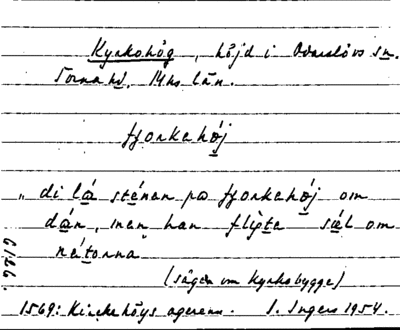 Kyrkohög, höjd i Odarslövs sn.
Torna hd, Mhs län.
fjorkehøj
„di lá sténan pa fjorkehøj om
dán, men han flɩ̀pte sæ̀l om
nètorna"
(sägen om kyrkobygge)
1569: Kirckehöys agerenn. I. Ingers 1954.